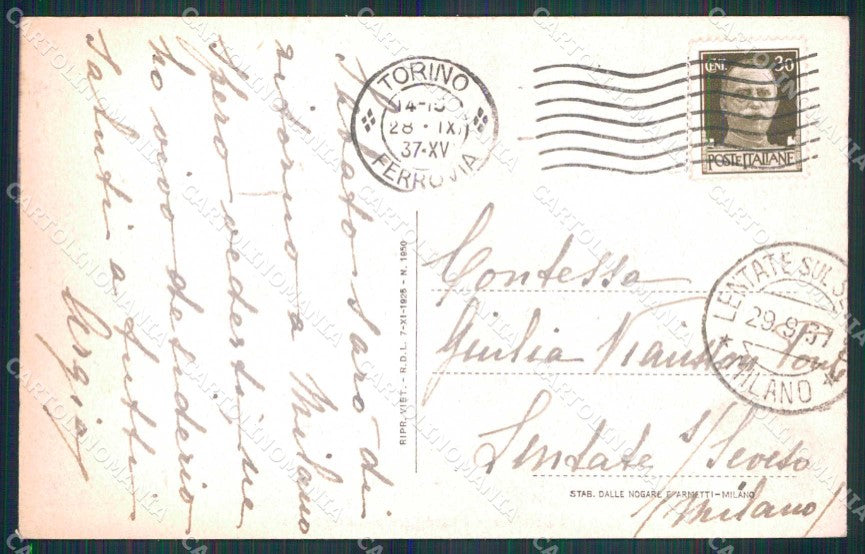 Stbato sarò di
ritorno a Milano
Spero vedertine
ho vivo desiderio
Saluti a tutti
TORINO
14-15
28·IX
37·XV
FERROVIA
CENT. 30
POSTE ITALIANE
Contessa
Giulia
Lentate s/ Seveso
/Milano/
LENTATE SUL S
29.9.37
MILANO
RIPR. VIET. - R.D.L. 7-XI-1925 - N. 1950
STAB. DALLE NOGARE E ARMETTI - MILANO
CARTOLINOMANIA